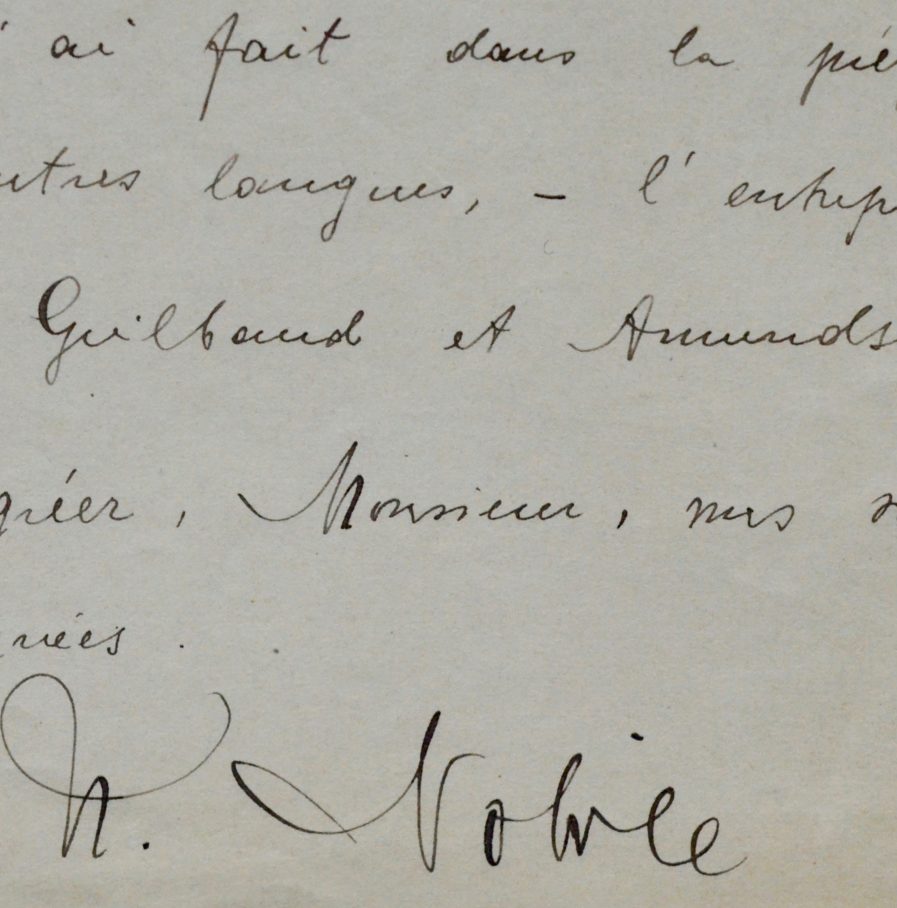 ai fait dans la pré
utres langues, – l'entrep
Guilbaud et Amunds
gréer, Monsieur, mes s
uées.
U. Nobile